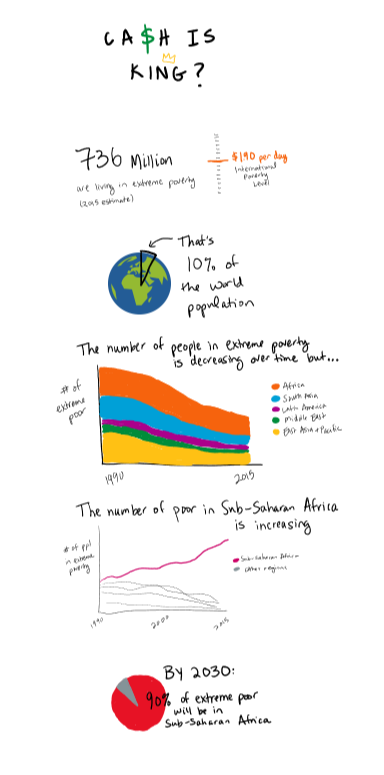 CA$H IS
KING?
736 Million
are living in extreme poverty
(2015 estimate)
$1.90 per day
International
Poverty
Level
That's
10% of
the world
population
The number of people in extreme poverty
is decreasing over time but...
# of
extreme
poor
Africa
South Asia
Latin America
Middle East
East Asia + Pacific
1990
2015
The number of poor in Sub-Saharan Africa
is increasing
# of ppl
in extreme
poverty
Sub-Saharan Africa
other regions
1990
2000
2015
By 2030:
90% of extreme poor
will be in
Sub-Saharan Africa